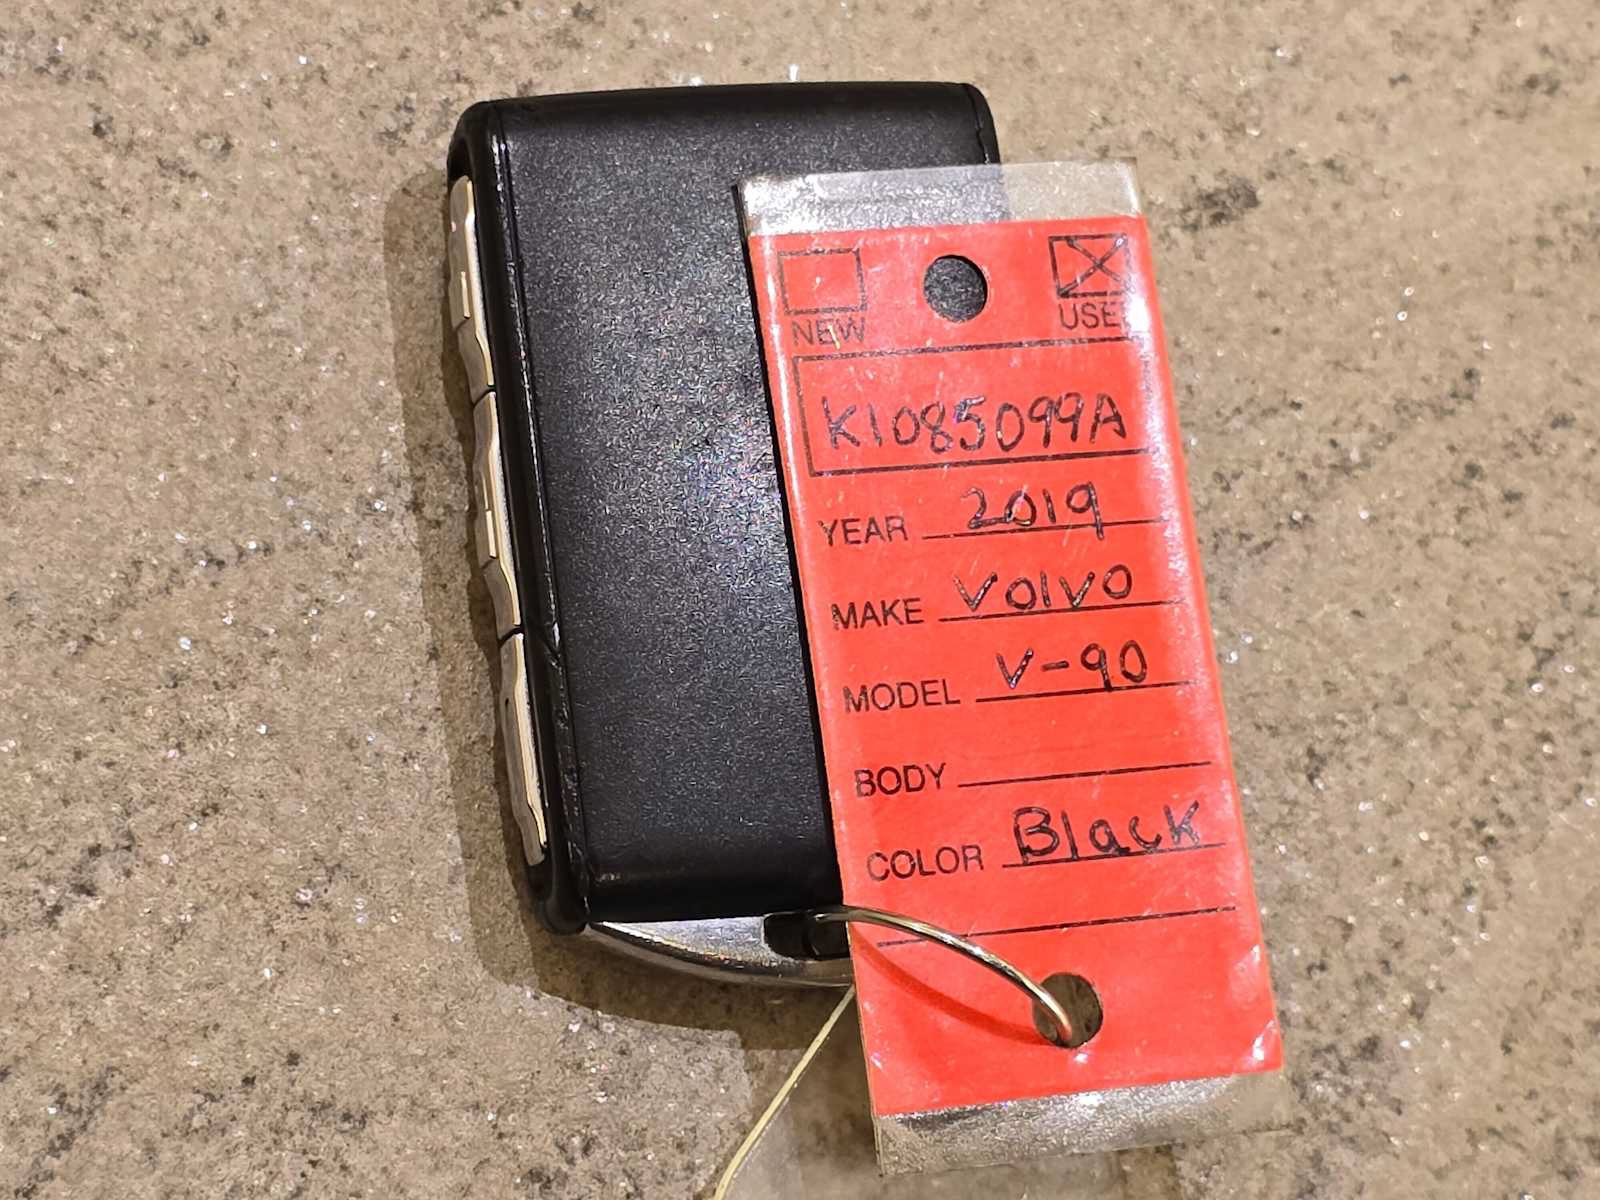 NEW USE
K1085099A
YEAR 2019
MAKE Volvo
MODEL V-90
BODY
COLOR Black